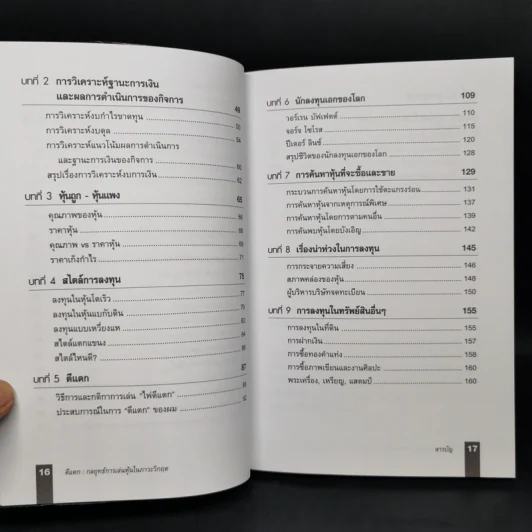 บทที่ 2 การวิเคราะห์ฐานะการเงิน
และผลการดำเนินการของกิจการ 49
การวิเคราะห์งบกำไรขาดทุน 50
การวิเคราะห์งบดุล 54
การวิเคราะห์แนวโน้มผลการดำเนินการ
และฐานะการเงินของกิจการ 60
สรุปเรื่องการวิเคราะห์งบการเงิน 62
บทที่ 3 หุ้นถูก - หุ้นแพง 65
คุณภาพของหุ้น 66
ราคาหุ้น 68
คุณภาพ vs ราคาหุ้น
ราคาเกิงกำไร 71
บทที่ 4 สไตล์การลงทุน 75
ลงทุนในหุ้นโตเร็ว 77
ลงทุนในหุ้นแบกับดิน
ลงทุนแบบเหวี่ยงแห
สไตล์ตกแขนง 84
สไตล์ไหนดี?
บทที่ 5 ตีแตก 87
วิธีการและกติกาการเล่น "ไพ่ตีแตก" 88
ประสบการณ์ในการ "ตีแตก" ของผม
16 ตีแตก : กลยุทธ์การเล่นหุ้นในภาวะวิกฤต
บทที่ 6 นักลงทุนเอกของโลก 109
วอร์เรน บัฟเฟตต์ 110
จอร์จ โซรอส 115
ปีเตอร์ ลินช์ 120
สรุปชีวิตของนักลงทุนเอกของโลก 128
บทที่ 7 การค้นหาหุ้นที่จะซื้อและขาย 129
กระบวนการค้นหาหุ้นโดยการใช้ตะแกรงร่อน 131
การค้นหาหุ้นจากเหตุการณ์พิเศษ 137
การค้นหาหุ้นโดยการตามคนอื่น 139
การค้นพบหุ้นโดยบังเอิญ 142
บทที่ 8 เรื่องน่าห่วงในการลงทุน 145
การกระจายความเสี่ยง 146
สภาพคล่องของหุ้น 148
ผู้บริหารบริษัทจดทะเบียน 150
บทที่ 9 การลงทุนในทรัพย์สินอื่นๆ 155
การลงทุนในที่ดิน 155
การฝากเงิน 157
การซื้อทองคำแท่ง 158
การซื้อภาพเขียนและงานศิลปะ 160
พระเครื่อง, เหรียญ, แสตมป์ 160
สารบัญ 17